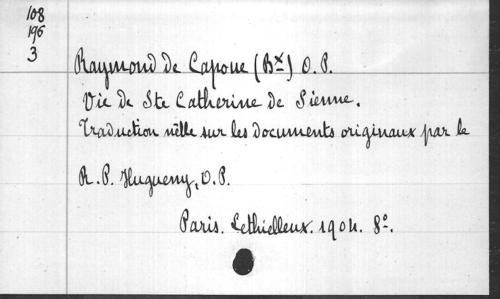 108
196
3
Raymond de Capoue (Bx) O.P.
Vie de Ste Catherine de Sienne.
Traduction nelle sur les documents originaux par le
R.P. Hugueny, O.P.
Paris. Lethielleux. 1904. 8º.